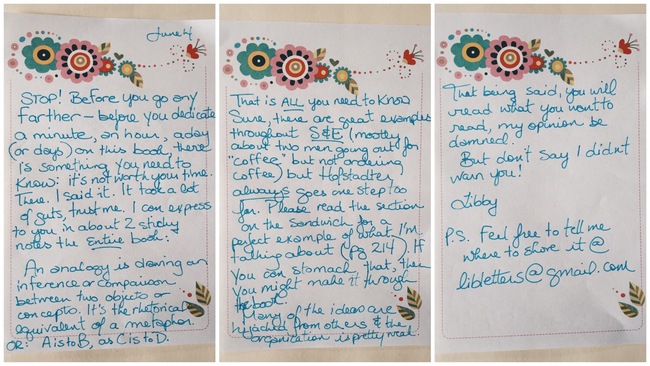 June 4
STOP! Before you go any
farther - before you dedicate
a minute, an hour, a day
(or days) on this book, there
is something you need to
know: it's not worth your time.
There. I said it. It took a lot
of guts, trust me. I can express
to you in about 2 sticky
notes the entire book:
An analogy is drawing an
inference or comparison
between two objects or
concepts. It's the rhetorical
equivalent of a metaphor.
OR: A is to B, as C is to D.
That is ALL you need to know
Sure, there are great examples
throughout S&E (mostly
about two men going out for
"coffee," but not ordering
coffee) but Hofstadter
always goes one step too
far. Please read the section
on the sandwich for a
perfect example of what I'm
talking about (pg 214). If
you can stomach that, then
you might make it through
the book.
Many of the ideas are
hijacked from others & the
organization is pretty weak.
That being said, you will
read what you want to
read, my opinion be
damned.
But don't say I didn't
warn you!
Libby
P.S. Feel free to tell me
where to shove it @
libletters@gmail.com